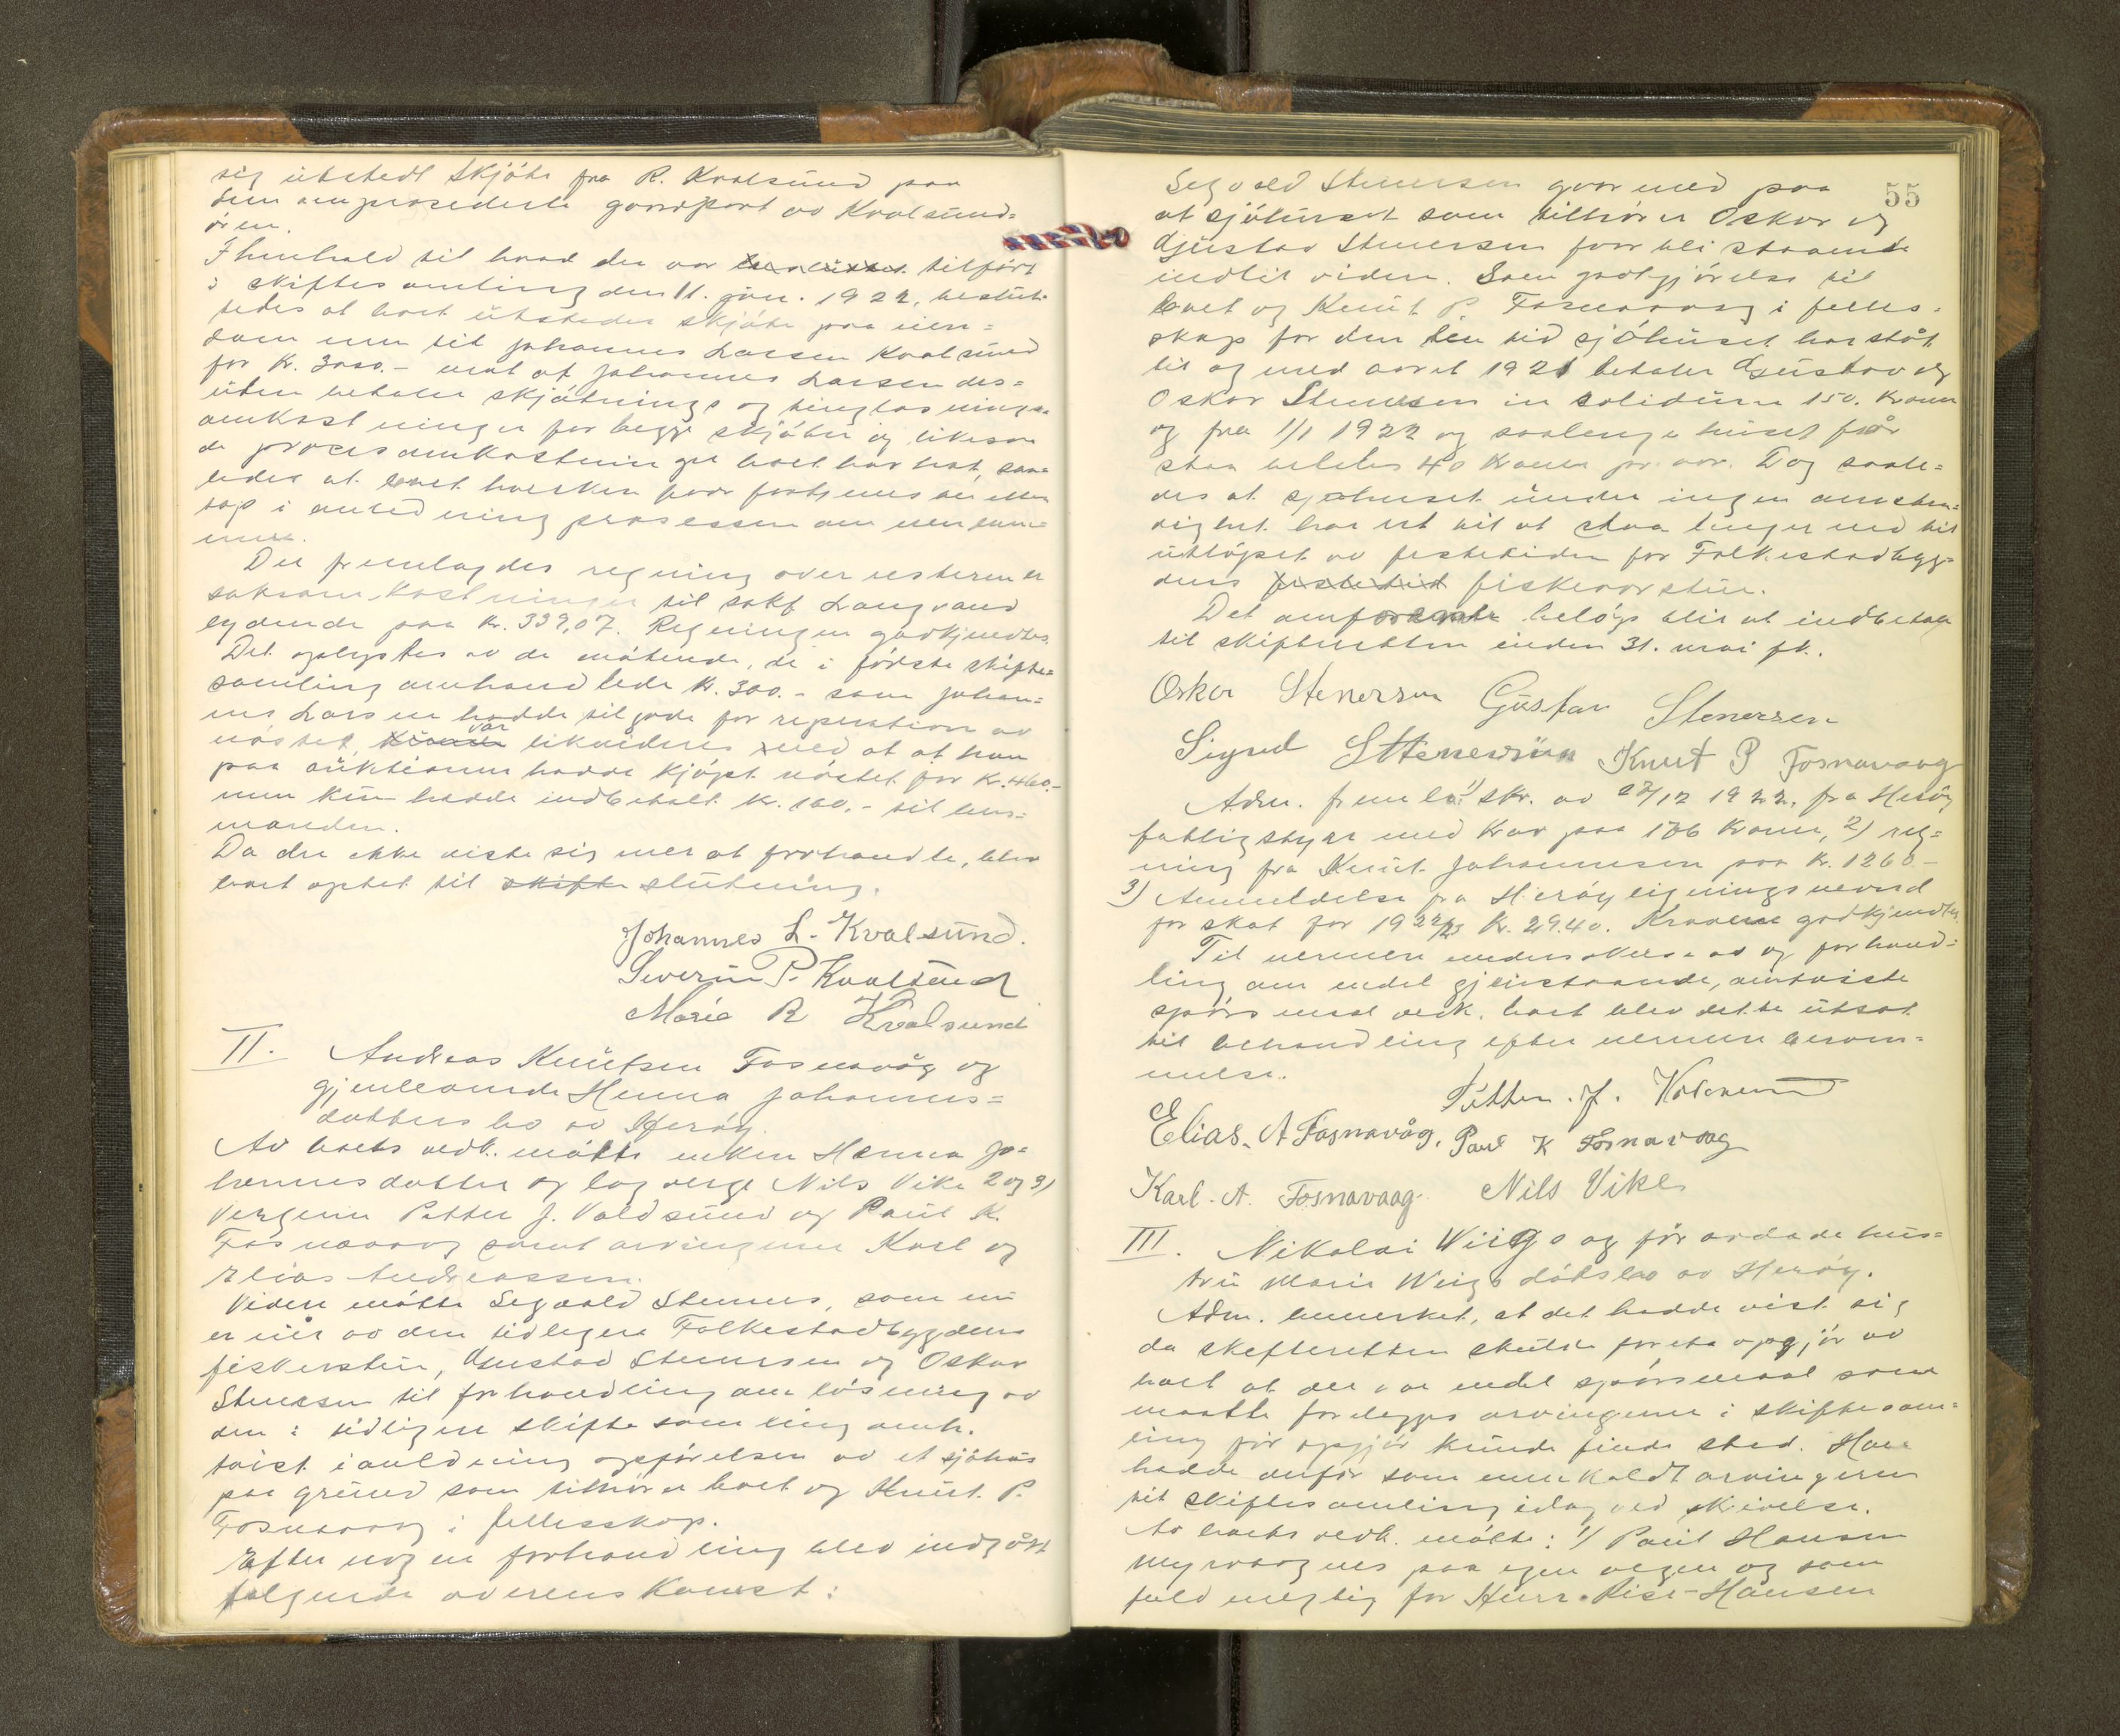 sig utstedt skjöte fra R. Kvalsund paa
den omprosederte gaardpart av Kvalsund=
ören.
I henhold til hvad der var tilfört
i skiftesamling den 11. jan. 1922, beslut-
tedes at boet utsteder skjöte paa eien=
dommen til Johannes Larsen Kvalsund
for kr. 3000.- mot at Johannes Larsen des=
uten betaler skjötnings og tinglæsnings-
omkostninger for begge skjöter og likesom
de procesomkostninger boet har hat, saa=
ledes at boet hverken faar fortjeneste eller
tap i anledning prosessen om eiendom=
men.
Der fremlagdes regning over resterende
saksomkostninger til sakf. Langvand
lydende paa kr. 339,07. Regningen godkjendtes.
Det oplystes av de mötende, de i förste skifte=
samling omhandlede kr. 300.- som Johan=
nes Larsen hadde tilgode for reperation av
nöstet, var likvideres med at at han
paa auktionen hadde kjöpt nöstet for kr. 460.-
men kun hadde indbetalt kr. 160.- til lens=
manden.
Da der ikke viste sig mer at forhandle, blev
boet optat til slutning.
Johannes L. Kvalsund.
Severin P. Kvalsund
Marie R Kvalsund
II. Andreas Knutsen Fosnavåg og
gjenlevende Henna Johannes=
datters bo av Heröy.
Av boets vedk. mötte enken Henna Jo=
hannesdatter og lagverge Nils Vike 2 og 3)
vergerne Petter J. Voldsund og Paul K.
Fosnavaag samt arvingerne Karl og
Elias Andreassen.
Videre mötte Segvald Steners, som nu
er eier av den tidligere Folkestadbygdens
fiskerstue, Gustav Stenersen og Oskar
Stenersen til forhandling om lösning av
den i tidligere skiftesamling omh.
tvist i anledning opförelsen av et sjöhus
paa grund som tilhörer boet og Knut P.
Fosnavaag i fellesskap.
Efter nogen forhandling blev indgåt
fölgende overenskomst:
55
Segvald Stenersen gaar med paa
at sjöhuset som tilhörer Oskar og
Gustav Stenersen faar bli staaende
indtil videre. Som godtgjörelse til
boet og Knut P. Fosnavaag i felles-
skap for den tid sjöhuset har ståt
til og med aaret 1921 betaler Gustav og
Oskar Stenersen in solidum 150. kroner
og fra 1/1 1922 og saalenge huset får
staa betales 40 kroner pr. aar. Dog saale=
des at sjöhuset under ingen omsten=
dighet har ret til at staa lenger end til
utlöpet av festetiden for Folkestadbygg-
dens fiskerorstue.
Det omforente belöp blir at indbetale
til skifteretten inden 31. mai fk.
Oskar Stenersen Gustav Stenersen
Sigvald Stenersen Knut P Fosnavaag
Adm. freml. 1) skr. av 27/12 1922, fra Heröy
fattigstyre med krav paa 106 kroner, 2) reg=
ning fra Knut Johannesen paa kr. 1260.-
3) Anmeldelse fra Heröy ligningsnevnd
for skat for 1922/23 kr. 29.40. Kravene godkjendtes.
Til nermere undersökelse av og forhand=
ling om endel gjenstaaende, omtviste
spörsmaal vedk. boet blev dette utsat
til behandling efter nermere beram=
melse.
Petter. J. Voldsund
Elias. A Fosnavåg. Paul K Fosnavaag
Karl. A. Fosnavaag. Nils Vike
III. Nikolai Wiigs ogför avdöde hus=
tru Marie Wiigs dödsbo av Heröy.
Adm. bemerket, at det hadde vist sig
da skifteretten skulde foreta opgjör av
boet at der var endel spörsmaal som
maatte forelegges arvingerne i skiftesam=
ling för opgjör kunde finde sted. Han
hadde derfor sammenkaldt arvingerne
til skiftesamling idag ved skrivelse.
Av boets vedk. mötte: 1) Paul Hansen
Myrvaagnes paa egne vegne og som
fuldmegtig for Herr. Rise-Hansen